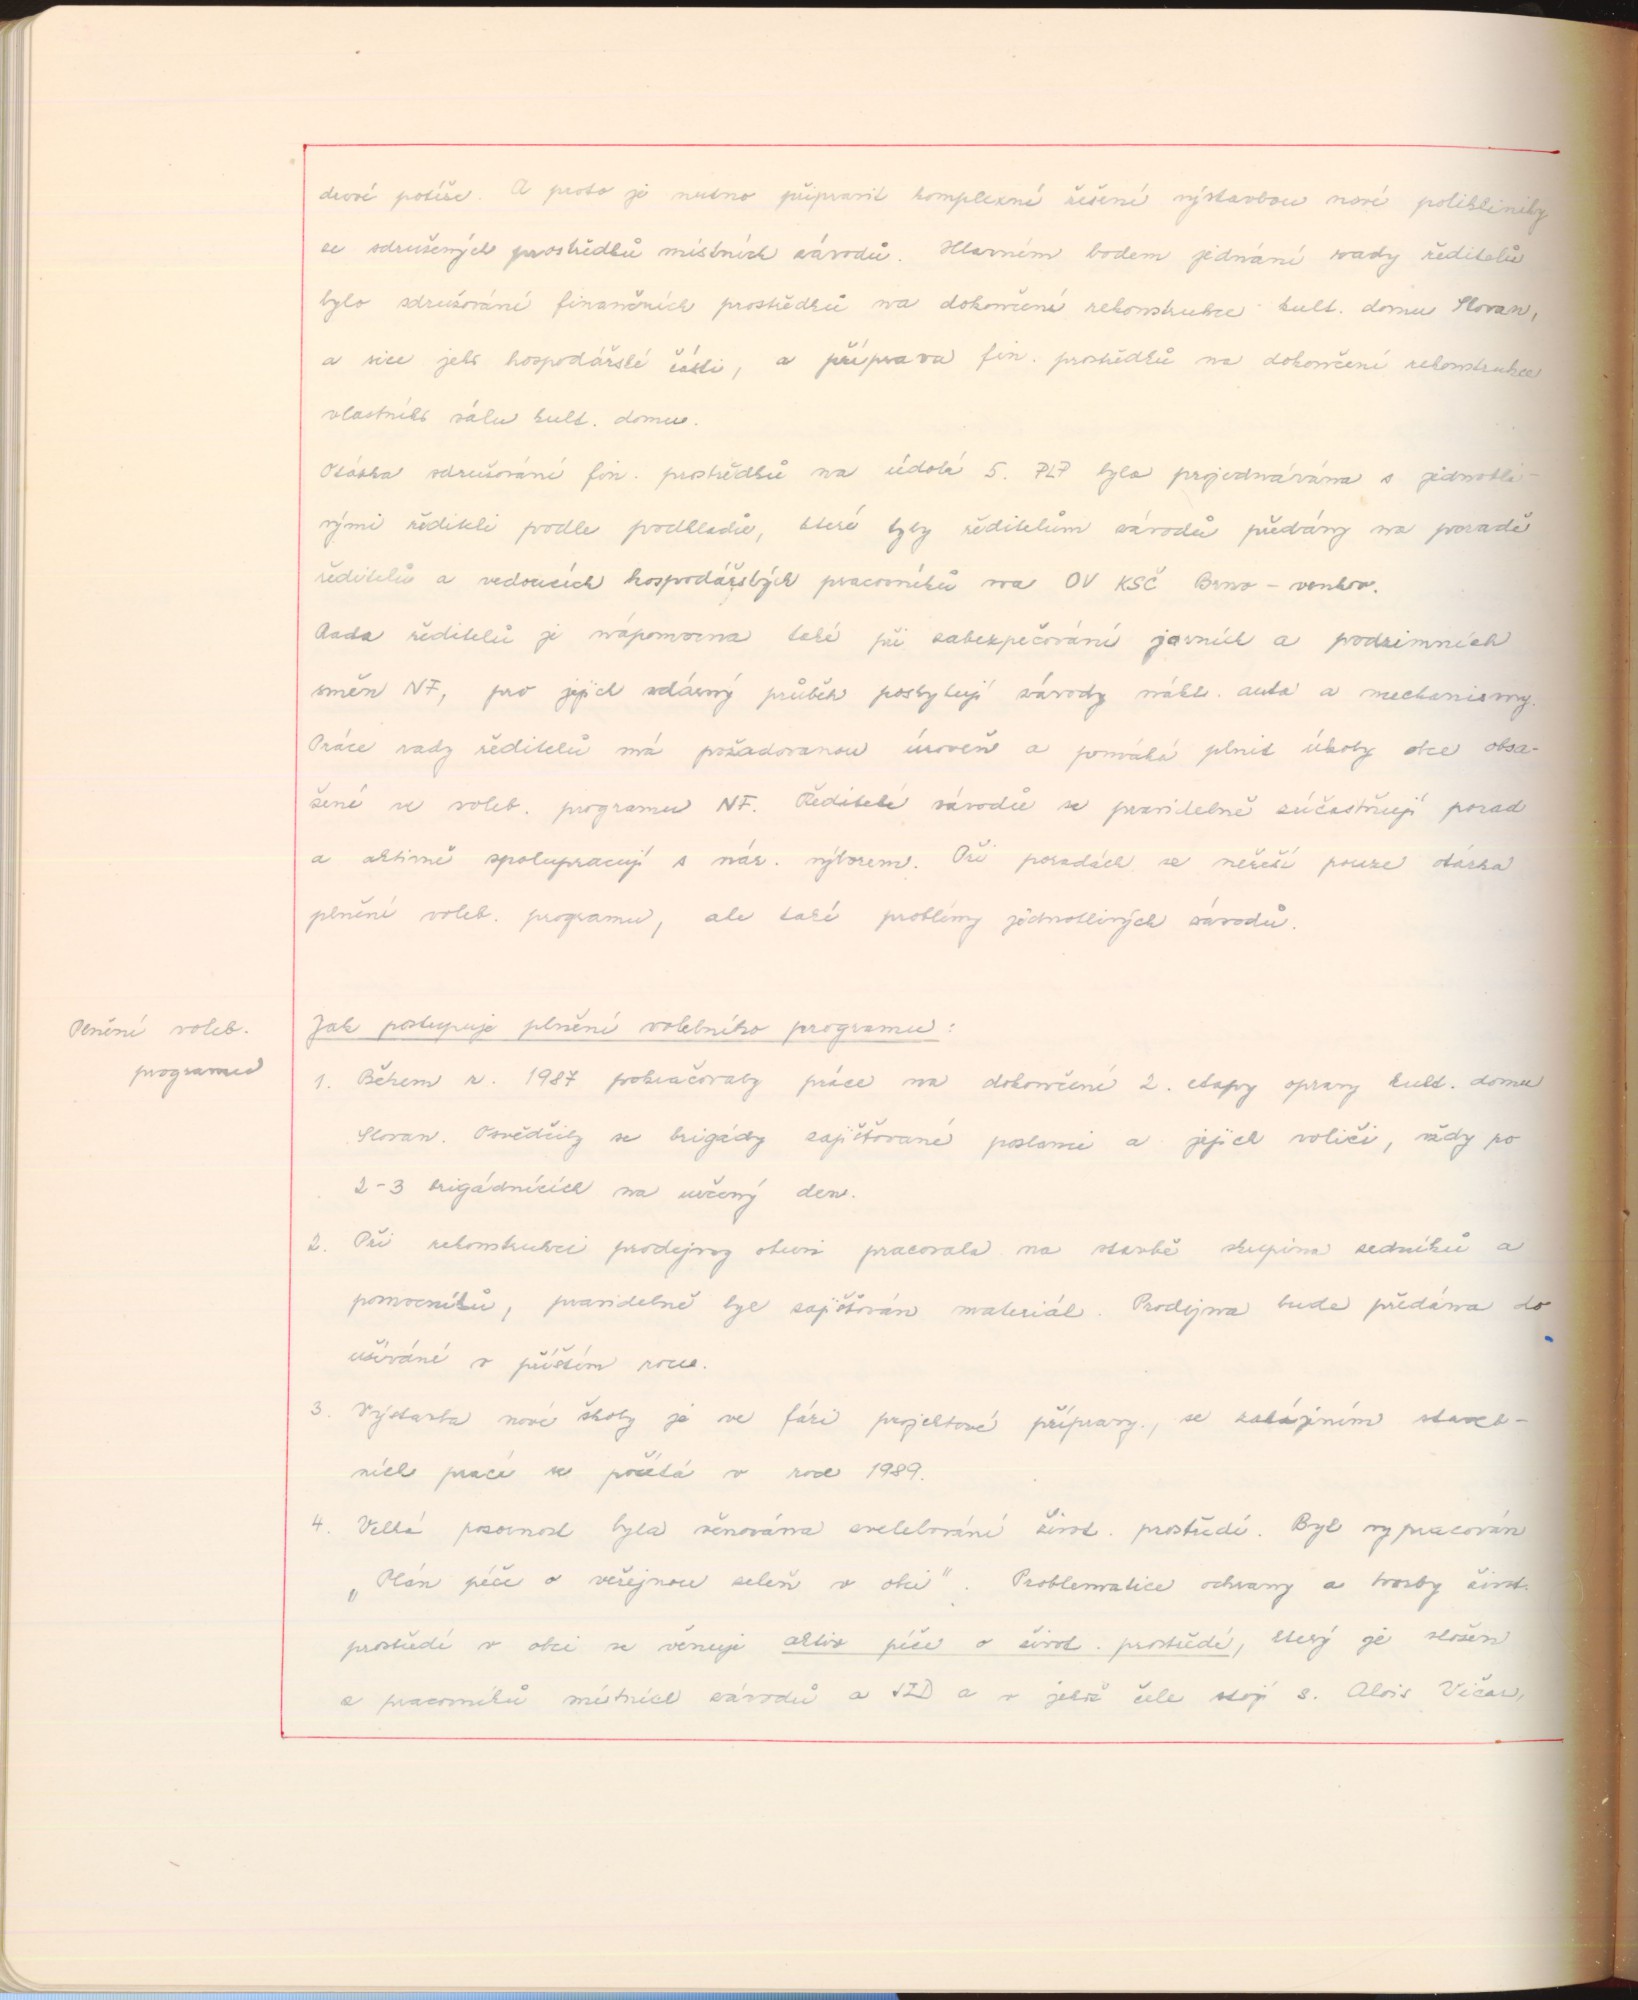 dové potíže. A proto je nutno připravit komplexní řešení výstavbou nové polikliniky
ze sdružených prostředků místních závodů. Hlavním bodem jednání rady ředitelů
bylo sdružování finančních prostředků na dokončení rekonstrukce kult. domu Slovan,
a sice jeho hospodářské části, a příprava fin. prostředků na dokončení rekonstrukce
vlastního sálu kult. domu.
Otázka sdružování fin. prostředků na údobí 5. PLP byla projednávána s jednotli-
vými řediteli podle podkladů, které byly ředitelům závodů předány na poradě
ředitelů a vedoucích hospodářských pracovníků na OV KSČ Brno - venkov.
Rada ředitelů je nápomocna také při zabezpečování jarních a podzimních
směn NF, pro jejich zdárný průběh poskytují závody nákl. auta a mechanismy.
Práce rady ředitelů má požadovanou úroveň a pomáhá plnit úkoly obce obsa-
žené ve voleb. programu NF. Ředitelé závodů se pravidelně zúčastňují porad
a aktivně spolupracují s nár. výborem. Při poradách se neřeší pouze otázka
plnění voleb. programu, ale také problémy jednotlivých závodů.
Plnění voleb.
programu
Jak postupuje plnění volebního programu:
1. Během r. 1987 pokračovaly práce na dokončení 2. etapy opravy kult. domu
Slovan. Osvědčily se brigády zajišťované poslanci a jejich voliči, vždy po
2-3 brigádnících na určený den.
2. Při rekonstrukci prodejny obuvi pracovala na stavbě skupina zedníků a
pomocníků, pravidelně byl zajišťován materiál. Prodejna bude předána do
užívání v příštím roce.
3. Výstavba nové školy je ve fázi projektové přípravy., se zahájením staveb-
ních prací se počítá v roce 1989.
4. Velká pozornost byla věnována zvelebování život. prostředí. Byl vypracován
„Plán péče o veřejnou zeleň v obci". Problematice ochrany a tvorby život.
prostředí v obci se věnuje aktiv péče o život. prostředí, který je složen
z pracovníků místních závodů a JZD a v jehož čele stojí s. Alois Vičar,